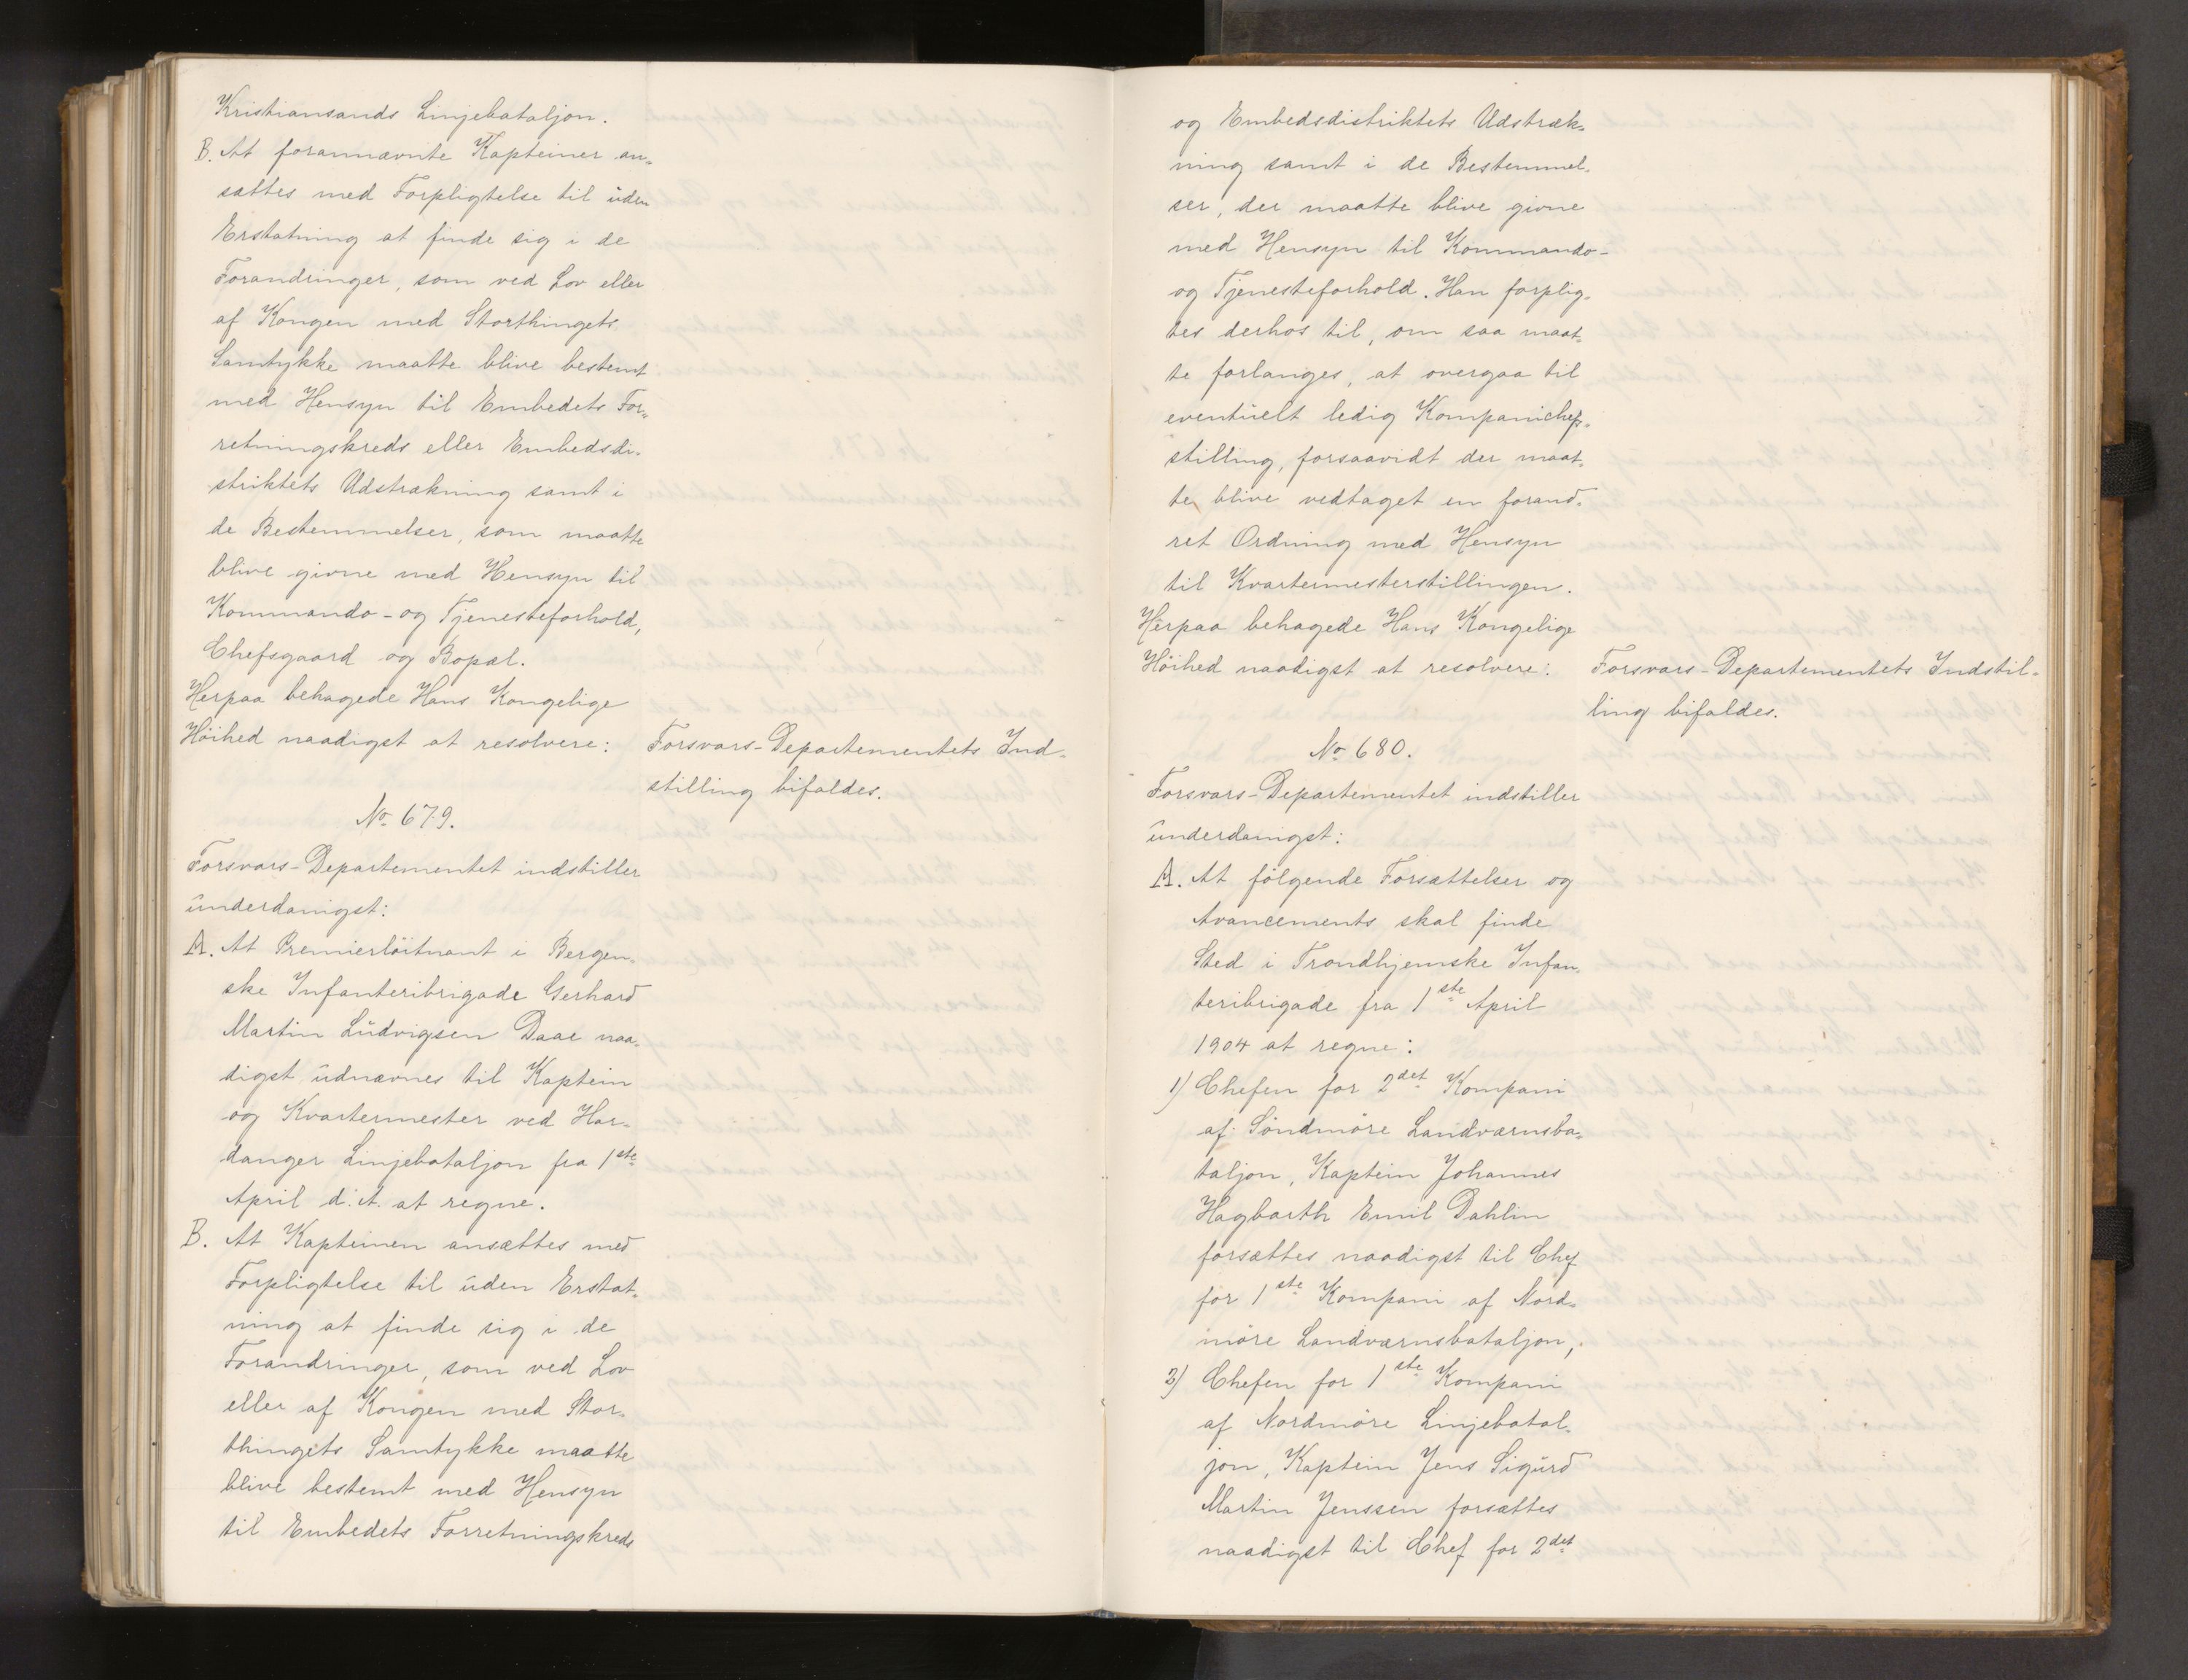 Kristiansands Linjebataljon.
B. At forannævnte Kapteiner an-
sættes med Forpligtelse til uden
Erstatning at finde sig i de
Forandringer, som ved Lov eller
af Kongen med Storthingets
Samtykke maatte blive bestemt
med Hensyn til Embedets For-
retningskreds eller Embedsdi-
striktets Udstrækning samt i
de Bestemmelser, som maatte
blive givne med Hensyn til
Kommando- og Tjenesteforhold,
Chefsgaard og Bopæl.
Herpaa behagede Hans Kongelige
Höihed naadigst at resolvere:
Forsvars-Departementets Ind-
stilling bifaldes.
No 679.
Forsvars-Departementet indstiller
underdanigst:
A. At Premierlöitnant i Bergen-
ske Infanteribrigade Gerhard
Martin Ludvigsen Daae naa-
digst udnævnes til Kaptein
og Kvartermester ved Har-
danger Linjebataljon fra 1ste
April d. A. at regne.
B. At Kapteinen ansættes med
Forpligtelse til uden Erstat-
ning at finde sig i de
Forandringer, som ved Lov
eller af Kongen med Stor-
thingets Samtykke maatte
blive bestemt med Hensyn
til Embedets Forretningskreds
og Embedsdistriktets Udstræk-
ning samt i de Bestemmel-
ser, der maatte blive givne
med Hensyn til Kommando-
og Tjenesteforhold. Han forplig-
tes derhos til, om saa maat-
te forlanges, at overgaa til
eventuelt ledig Kompanichef-
stilling, forsaavidt der maat-
te blive vedtaget en forand-
ret Ordning med Hensyn
til Kvartermesterstillingen.
Herpaa behagede Hans Kongelige
Höihed naadigst at resolvere:
Forsvars-Departementets Indstil-
ling bifaldes.
No 680.
Forsvars-Departementet indstiller
underdanigst:
A. At fölgende Forsættelser og
Avancements skal finde
Sted i Trondhjemske Infan-
teribrigade fra 1ste April
1904 at regne:
1) Chefen for 2det Kompani
af Söndmöre Landværnsba-
taljon, Kaptein Johannes
Hagbarth Emil Dahlin
forsættes naadigst til Chef
for 1ste Kompani af Nord-
möre Landværnsbataljon,
2) Chefen for 1ste Kompani
af Nordmöre Linjebatal-
jon, Kaptein Jens Sigurd
Martin Jenssen forsættes
naadigst til Chef for 2det